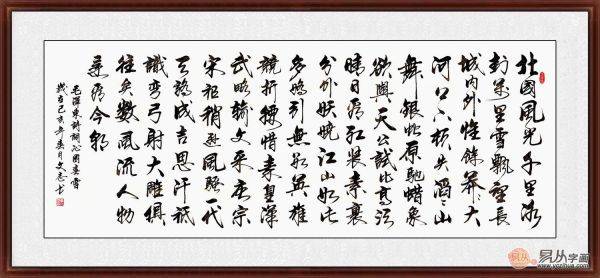 北國風光千里冰
封萬里雪飄望長
城内外惟餘莽〻大
河上下頓失滔〻山
舞銀蛇原馳蠟象
欲與天公試比高須
晴日看紅裝素裹
分外妖嬈江山如此
多嬌引無數英雄
競折腰惜秦皇漢
武略輸文采唐宗
宋祖稍遜風騷一代
天驕成吉思汗祇
識彎弓射大雕俱
往矣數風流人物
還看今朝
毛澤東詩詞沁園春雪
己亥年
易从字画
www.yczihua.com